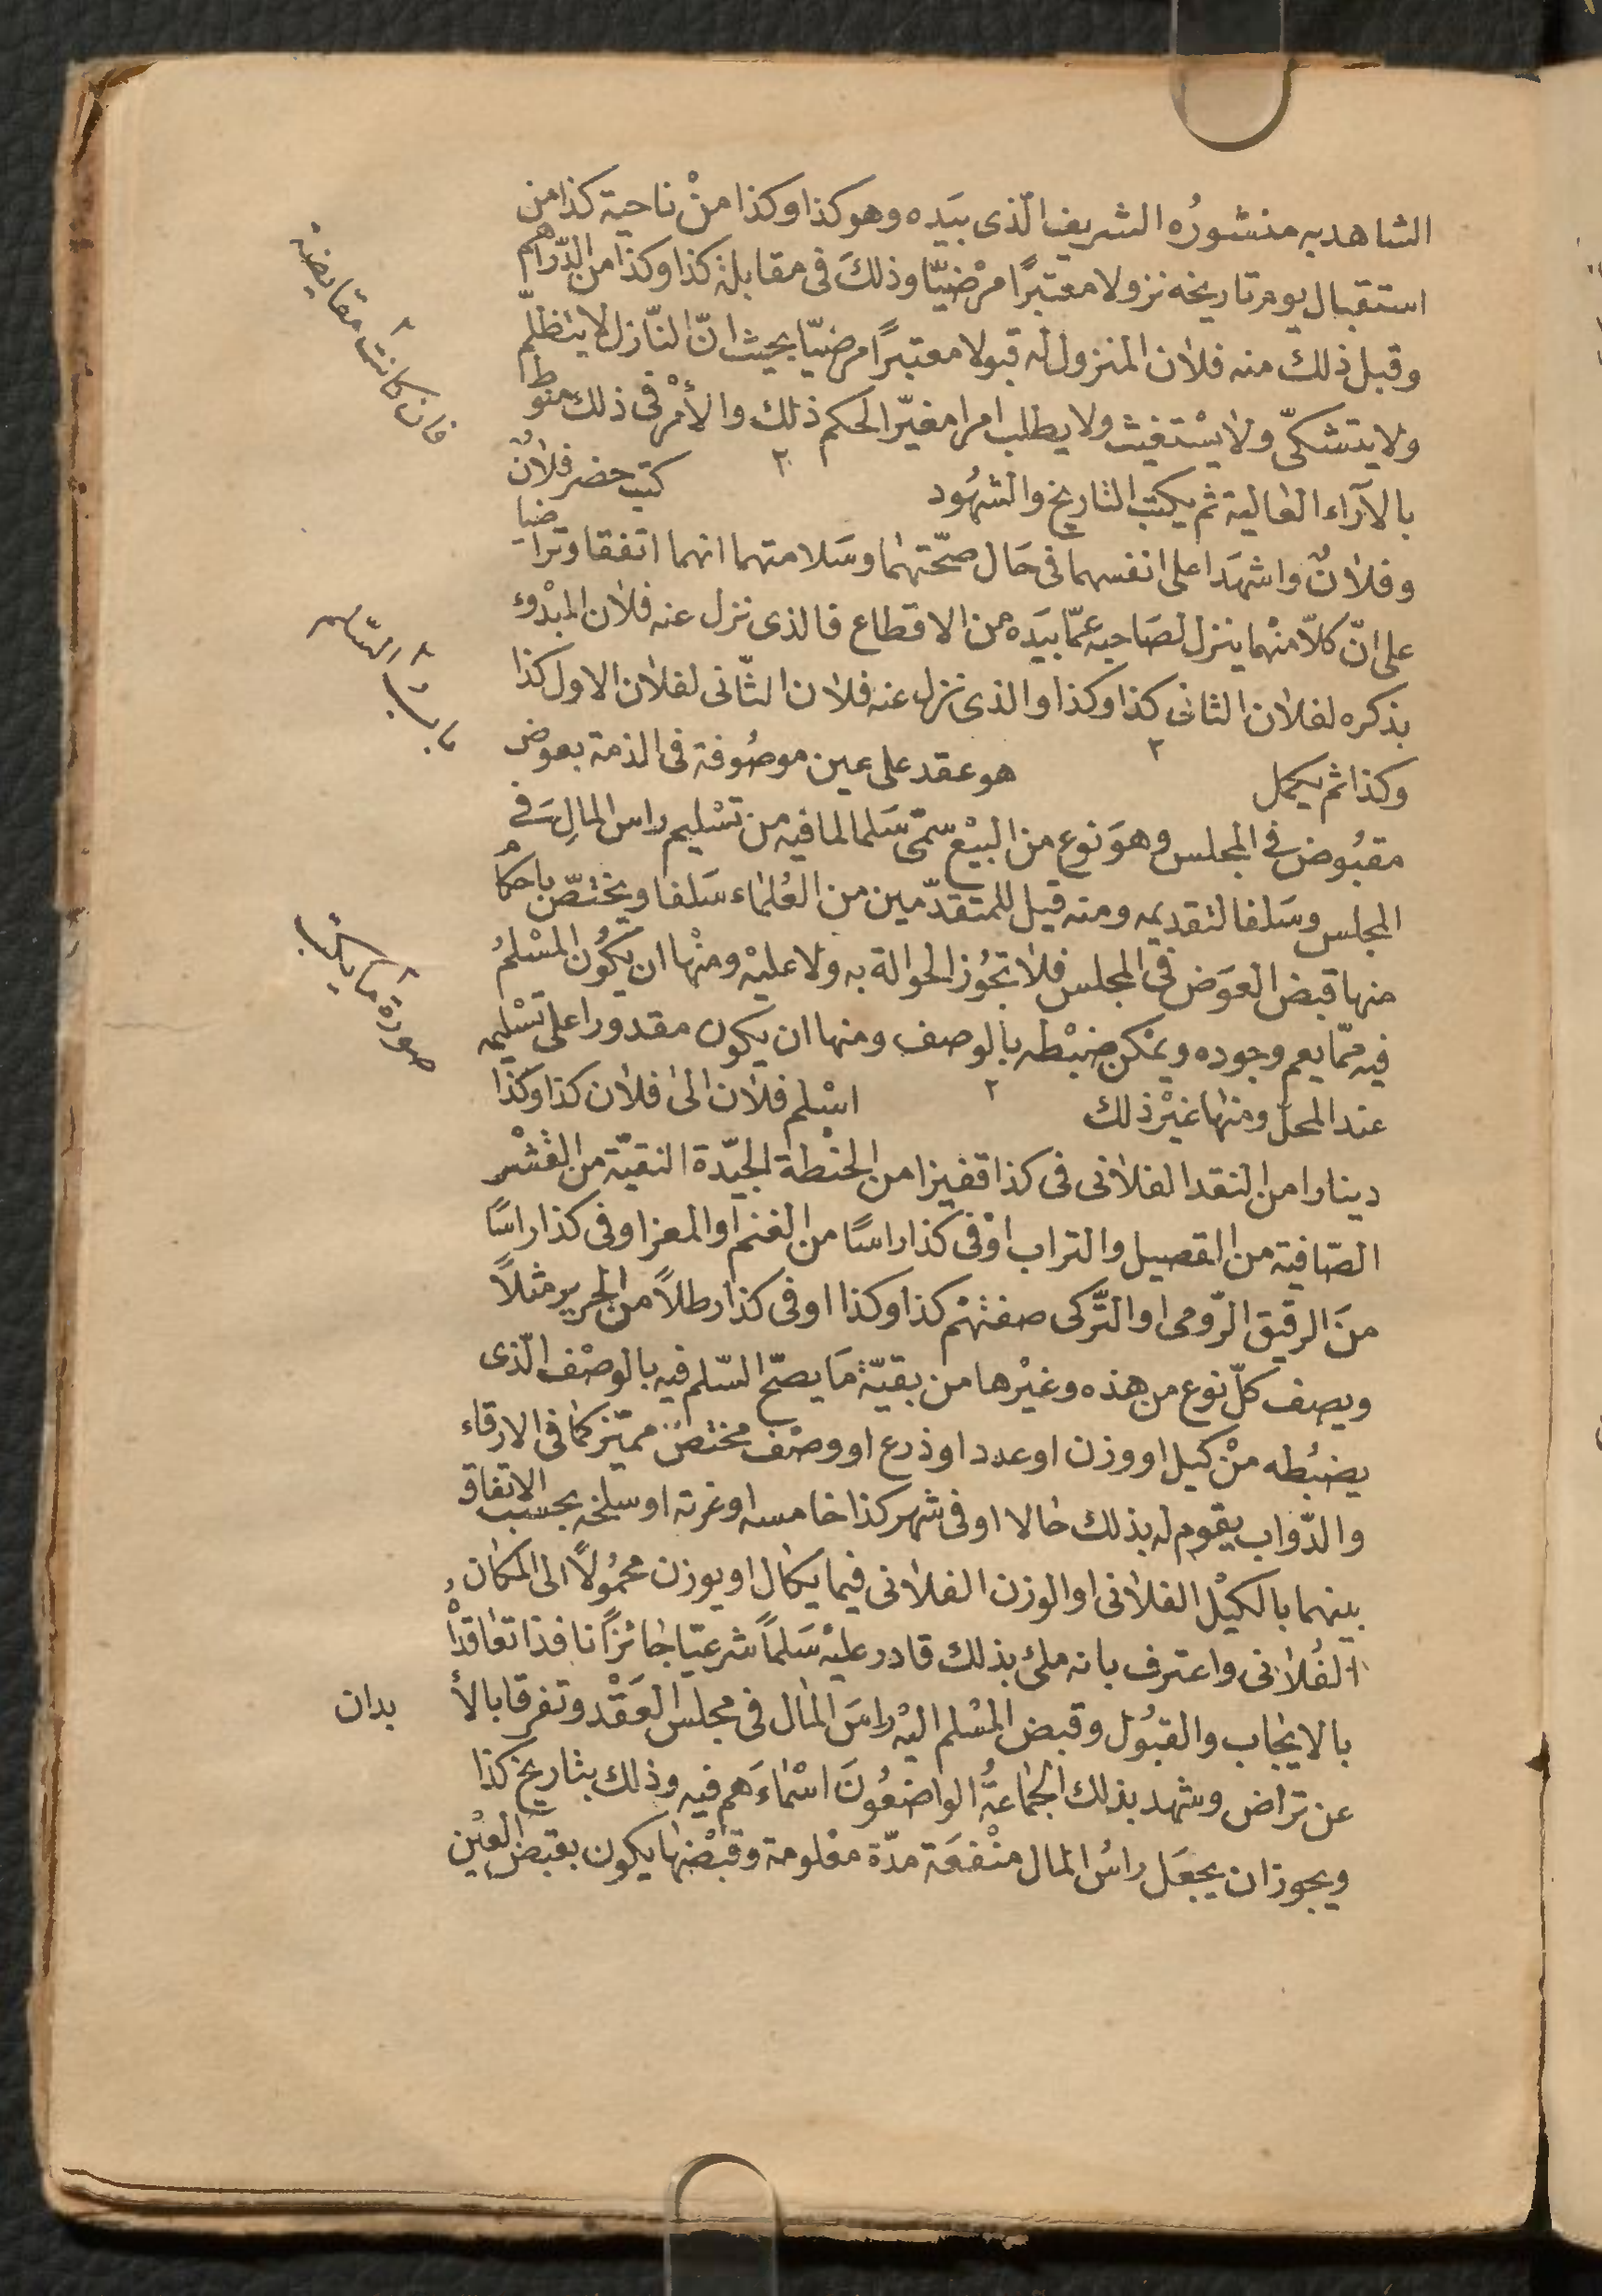 الشاهد به منشورُه الشريف الّذى بيَده وهو كذا وكذا منْ ناحية كذا من
استقبال يوم تاريخه نزولا معتبرًا مرْضيّا وذلكَ فى مقابلة كذا وكذا من الدّراهم
فان كانت مقايضة
وقبل ذلك منه فلان المنزول له قبولا معتبرًا مرضيّا بحيث انّ النّازل لا يتظلّم
ولا يتشكىّ ولا يسْتغيث ولا يطلب امرا مغيّرا لحكم ذلك والأمْر فى ذلك منوط
بالآراء العالية ثم يكتب التاريخ والشهُود ٢ كتب حضر فلانٌ
وفلانٌ واشهدَا على انفسهما فى حَال صحّتهما وسَلامتهما انهما اتفقا وتراضيا
على انّ كلاّ منْهما ينزل لصَاحبه عمّا بيَده من الاقطاع فالذى نزل عنه فلان المبْدوء
باب السّلم
بذكره لفلان الثانى كذا وكذا والذى نزل عنه فلان الثّانى لفلان الاول كذا
وكذا ثم يكمل ٢ هو عقد على عين موصُوفة فى الذمة بعوض
مقبُوض فى المجلس وهوَ نوع من البيْع سمّى سَلما لما فيه من تسْليم راس المالِ فى
المجلس وسَلفا لتقديمه ومنه قيل للمتقدّمين من العُلماء سَلفا ويختصّ باحكامٌ
منها قبض العوَض فى المجلس فلا تجُوز الحوالة به ولا عليْه ومنْها ان يكُون المسْلمُ
صورة ما يكتب
فيه ممّا يعم وجوده ويمْكن ضبْطه بالوصف ومنها ان يكون مقدورا على تسْليمه
عند المحلّ ومنها غيْر ذلك ٢ اسْلم فلان الى فلان كذا وكذا
دينارا من النقد الفلانى فى كذا قفيزا من الحنْطة الجيّدة النقيّة من القشْر
الصّافية من القصيل والتراب اوْ فى كذا راسًا من الغنم او المعز او فى كذا راسًا
منَ الرقيق الرّومى او التّركى صفتهْم كذا وكذا او فى كذا رطلاً من الحرير مثلاً
ويصف كلّ نوع من هذه وغيْرها من بقيّة مَا يصحّ السّلم فيه بالوصْف الّذى
يضبُطه منْ كيل او وزن او عدد او ذرع او وصْف مختصّ مميّز كما فى الارقاء
والدّواب يقوم له بذلك حالا او فى شهر كذا خامسه او غرته او سلخه بحسب الاتفاق
بينهما بالكيْل الفلانى او الوزن الفلانى فيما يكال او يوزن محمُولاً الى المكان
الفُلانى واعترف بانه ملئ بذلك قادر عليْه سَلماً شرعيّا جائزًا نافذا تعاقدْا
بالايجاب والقبُول وقبض المسْلم اليْه راسَ المال فى مجلس العَقْد وتفرقا بالأ بدان
عن تراض وشهد بذلك الجماعةُ الواضعُونَ اسْماءَهم فيه وذلك بتاريخ كذا
ويجوز ان يجعَل راسُ المال منْفعَة مدّة معْلومة وقبْضها يكون بقبض العيْن